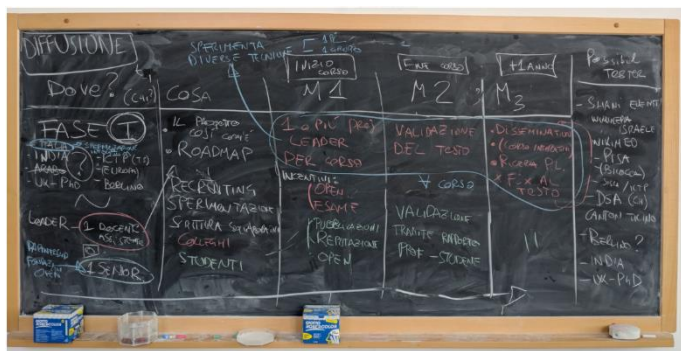 DIFFUSIONE
SPERIMENTA
DIVERSE TECNICHE
Dove? (Chi?)
COSA
INIZIO
CORSO
M1
FINE CORSO
M2
+1 ANNO
M3
Possibili
TESTER
FASE I
ITALIA
INDIA
UK-PhD
?
(EUROPA)
BERLINO
LEADER
1 DOCENTE
1 SENIOR
IL PROGETTO
COSÌ COM'È
• ROADMAP
RECRUITING
SPERIMENTAZIONE
SCRITTURA
COLLEGHI
STUDENTI
1 O PIÙ PROF
LEADER
PER CORSO
INCENTIVI:
OPEN
ESAME
PUBBLICAZIONI
OPEN
VALIDAZIONE
DEL TESTO
∀ CORSO
VALIDAZIONE
TRAMITE RAPPORTO
PROF-STUDENTE
• DISSEMINATION
• RICERCA PL.
• FIX AL
TESTO
11
ISRAELE
- PISA
- DSA (CH)
CANTON TICINO
- BERLINO?
- INDIA
- UK-PhD